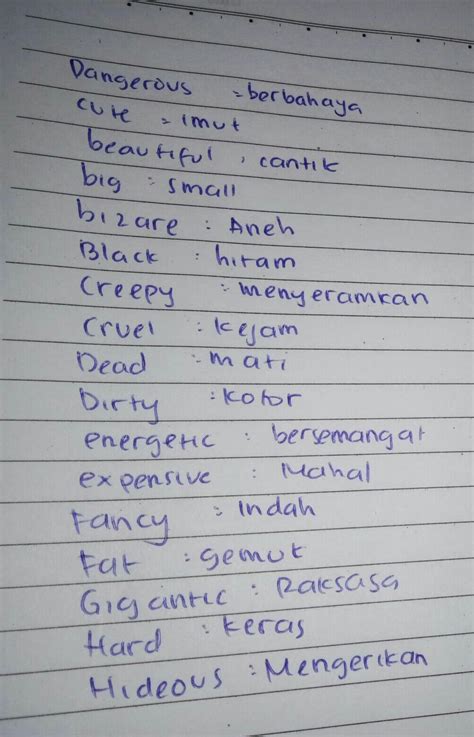 Dangerous = berbahaya
cute = imut
beautiful , cantik
big : small
bizare : Aneh
Black : hitam
Creepy = menyeramkan
Cruel : kejam
Dead = mati
Dirty : kotor
energetic : bersemangat
expensive : Mahal
Fancy : indah
Fat : gemuk
Gigantic : Raksasa
Hard : keras
Hideous : Mengerikan